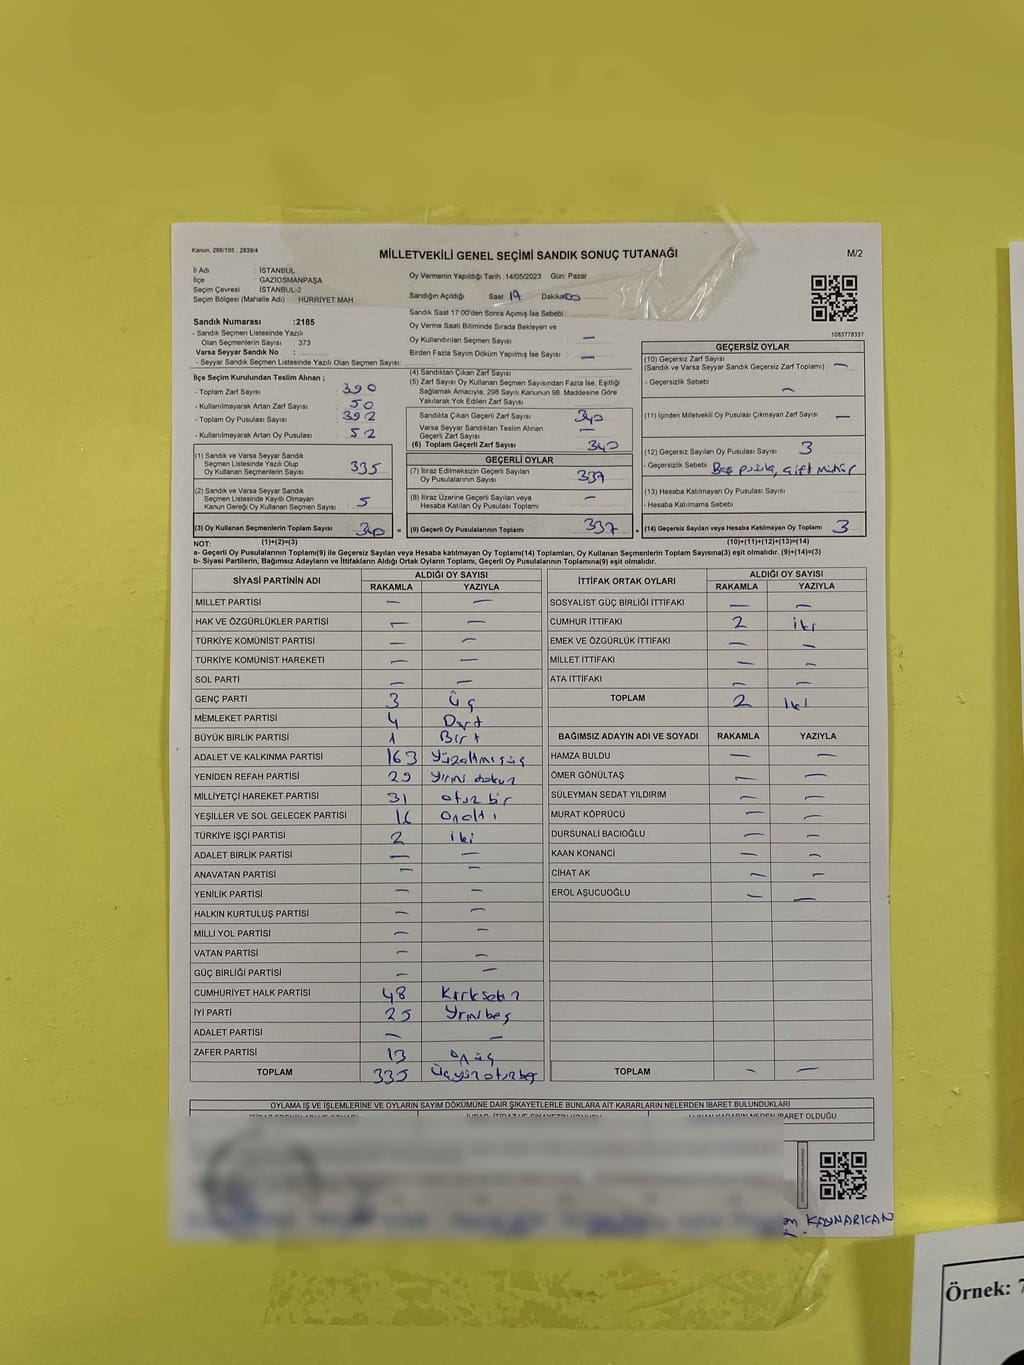 Kanun: 298/105 ; 2839/4
MİLLETVEKİLİ GENEL SEÇİMİ SANDIK SONUÇ TUTANAĞI
M/2
İl Adı : İSTANBUL
İlçe : GAZİOSMANPAŞA
Seçim Çevresi : İSTANBUL-2
Seçim Bölgesi (Mahalle Adı) : HÜRRİYET MAH.
Sandık Numarası :2185
- Sandık Seçmen Listesinde Yazılı
Olan Seçmenlerin Sayısı : 373
Varsa Seyyar Sandık No :
- Seyyar Sandık Seçmen Listesinde Yazılı Olan Seçmen Sayısı:
Oy Vermenin Yapıldığı Tarih : 14/05/2023 Gün: Pazar
Sandığın Açıldığı Saat 17 Dakika 00
Sandık Saat 17:00'den Sonra Açımış İse Sebebi :
Oy Verme Saati Bitiminde Sırada Bekleyen ve
Oy Kullandırılan Seçmen Sayısı —
Birden Fazla Sayım Döküm Yapılmış İse Sayısı : —
1083778337
İlçe Seçim Kurulundan Teslim Alınan ;
- Toplam Zarf Sayısı : 390
- Kullanılmayarak Artan Zarf Sayısı : 50
- Toplam Oy Pusulası Sayısı : 392
- Kullanılmayarak Artan Oy Pusulası : 52
(1) Sandık ve Varsa Seyyar Sandık
Seçmen Listesinde Yazılı Olup
Oy Kullanan Seçmenlerin Sayısı 335
(2) Sandık ve Varsa Seyyar Sandık
Seçmen Listesinde Kayıtlı Olmayan
Kanun Gereği Oy Kullanan Seçmen Sayısı 5
(3) Oy Kullanan Seçmenlerin Toplam Sayısı 340 =
(4) Sandıktan Çıkan Zarf Sayısı
(5) Zarf Sayısı Oy Kullanan Seçmen Sayısından Fazla İse, Eşitliği
Sağlamak Amacıyla, 298 Sayılı Kanunun 98. Maddesine Göre
Yakılarak Yok Edilen Zarf Sayısı
Sandıkta Çıkan Geçerli Zarf Sayısı 340
Varsa Seyyar Sandıktan Teslim Alınan
Geçerli Zarf Sayısı —
(6) Toplam Geçerli Zarf Sayısı 340
GEÇERLİ OYLAR
(7) İtiraz Edilmeksizin Geçerli Sayılan
Oy Pusulalarının Sayısı 337
(8) İtiraz Üzerine Geçerli Sayılan veya
Hesaba Katılan Oy Pusulası Toplamı —
(9) Geçerli Oy Pusulalarının Toplamı 337 +
GEÇERSİZ OYLAR
(10) Geçersiz Zarf Sayısı
(Sandık ve Varsa Seyyar Sandık Geçersiz Zarf Toplamı) —
- Geçersizlik Sebebi —
(11) İçinden Milletvekili Oy Pusulası Çıkmayan Zarf Sayısı —
(12) Geçersiz Sayılan Oy Pusulası Sayısı 3
- Geçersizlik Sebebi Boş pusula, Çift mühür
(13) Hesaba Katılmayan Oy Pusulası Sayısı
- Hesaba Katılmama Sebebi
(14) Geçersiz Sayılan veya Hesaba Katılmayan Oy Toplamı 3
NOT: (1)+(2)=(3) (10)+(11)+(12)+(13)=(14)
a- Geçerli Oy Pusulalarının Toplamı(9) ile Geçersiz Sayılan veya Hesaba katılmayan Oy Toplamı(14) Toplamları, Oy Kullanan Seçmenlerin Toplam Sayısına(3) eşit olmalıdır. (9)+(14)=(3)
b- Siyasi Partilerin, Bağımsız Adayların ve İttifakların Aldığı Ortak Oyların Toplamı, Geçerli Oy Pusulalarının Toplamına(9) eşit olmalıdır.
SİYASİ PARTİNİN ADI ALDIĞI OY SAYISI
RAKAMLA YAZIYLA
MİLLET PARTİSİ — —
HAK VE ÖZGÜRLÜKLER PARTİSİ — —
TÜRKİYE KOMÜNİST PARTİSİ — —
TÜRKİYE KOMÜNİST HAREKETİ — —
SOL PARTİ — —
GENÇ PARTİ 3 üç
MEMLEKET PARTİSİ 4 Dört
BÜYÜK BİRLİK PARTİSİ 1 Bir
ADALET VE KALKINMA PARTİSİ 163 Yüzaltmışüç
YENİDEN REFAH PARTİSİ 29 Yirmi dokuz
MİLLİYETÇİ HAREKET PARTİSİ 31 otuz bir
YEŞİLLER VE SOL GELECEK PARTİSİ 16 Onaltı
TÜRKİYE İŞÇİ PARTİSİ 2 iki
ADALET BİRLİK PARTİSİ — —
ANAVATAN PARTİSİ — —
YENİLİK PARTİSİ — —
HALKIN KURTULUŞ PARTİSİ — —
MİLLİ YOL PARTİSİ — —
VATAN PARTİSİ — —
GÜÇ BİRLİĞİ PARTİSİ — —
CUMHURİYET HALK PARTİSİ 48 Kırksekiz
İYİ PARTİ 25 Yirmibeş
ADALET PARTİSİ — —
ZAFER PARTİSİ 13 onüç
TOPLAM 335 Üçyüzotuzbeş
İTTİFAK ORTAK OYLARI ALDIĞI OY SAYISI
RAKAMLA YAZIYLA
SOSYALIST GÜÇ BİRLİĞİ İTTİFAKI — —
CUMHUR İTTİFAKI 2 iki
EMEK VE ÖZGÜRLÜK İTTİFAKI — —
MİLLET İTTİFAKI — —
ATA İTTİFAKI — —
TOPLAM 2 İki
BAĞIMSIZ ADAYIN ADI VE SOYADI RAKAMLA YAZIYLA
HAMZA BULDU — —
ÖMER GÖNÜLTAŞ — —
SÜLEYMAN SEDAT YILDIRIM — —
MURAT KÖPRÜCÜ — —
DURSUNALİ BACIOĞLU — —
KAAN KONANCİ — —
CİHAT AK — —
EROL AŞUCUOĞLU — —
TOPLAM — —
OYLAMA İŞ VE İŞLEMLERİNE VE OYLARIN SAYIM DÖKÜMÜNE DAİR ŞİKAYETLERLE BUNLARA AİT KARARLARIN NELERDEN İBARET BULUNDUKLARI
KAYNARICAN
Örnek: 7